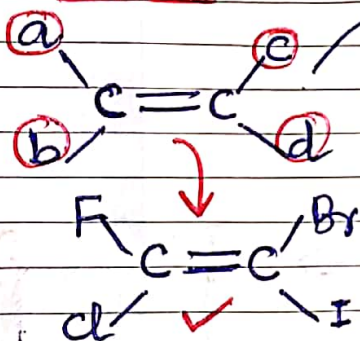 a c
C = C
b d
F Br
C = C
Cl I